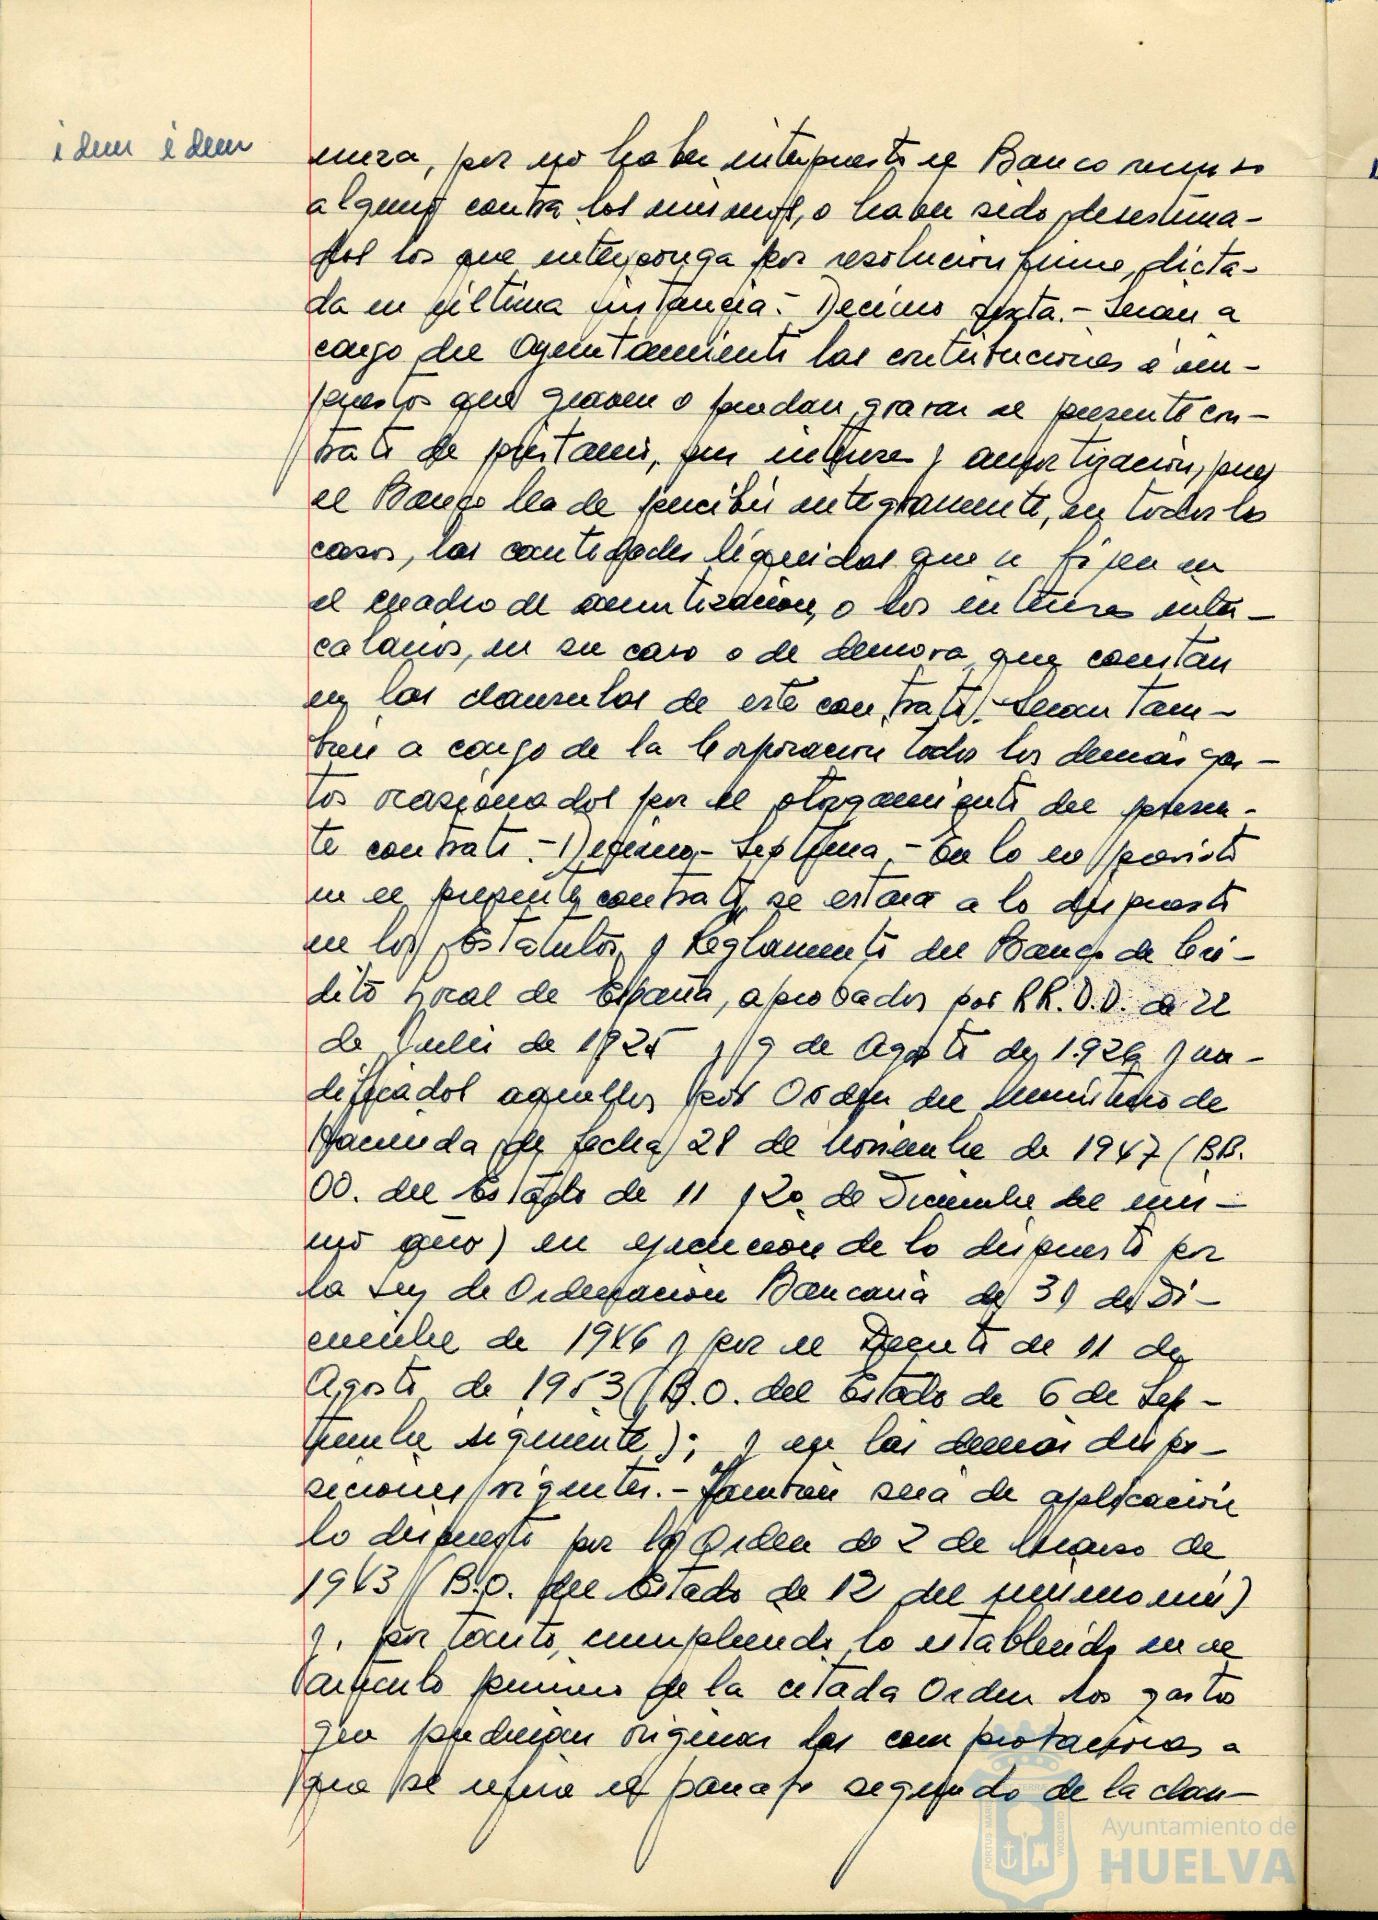 idem idem
mera, por no haber interpuesto el Banco recurso
alguno contra los mismos, o haber sido desestima-
dos los que interponga por resolución firme, dicta-
da en última instancia.- Décimo sexta.- Serán a
cargo del Ayuntamiento las contribuciones é im-
puestos que graven o puedan gravar el presente con-
trato de préstamo, sus intereses y amortización, pues
el Banco ha de percibir integramente, en todos los
casos, las cantidades líquidas que se fijen en
el cuadro de amortización, o los intereses inter-
calarios, en su caso o de demora que constan
en las clausulas de este contrato.- Seran tam-
bien a cargo de la Corporación todos los demás gas-
tos ocasionados por el otorgamiento del presen-
te contrato.- Décimo- Septima.- En lo no previsto
en el presente contrato, se estará a lo dispuesto
en los Estatutos y Reglamento del Banco de Cré-
dito Local de España, aprobados por RR.D.D. de 22
de Julio de 1925 y 9 de Agosto de 1.926 y mo-
dificados aquellos por Orden del Ministerio de
Hacienda de fecha 28 de Noviembre de 1947 (BB.
OO. del Estado de 11 y 20 de Diciembre del mis-
mo año) en ejecución de lo dispuesto por
la Ley de Ordenación Bancaria de 31 de Di-
ciembre de 1946 y por el Decreto de 11 de
Agosto de 1953 (B.O. del Estado de 6 de Sep-
tiembre siguiente); y en las demás dispo-
siciones vigentes.- También será de aplicación
lo dispuesto por la Orden de 2 de Marzo de
1943 (B.O. del Estado de 12 del mismo mes)
y, por tanto, cumpliendo lo establecido en el
artículo primero de la citada Orden los gastos
que pudieran originar las comprobaciones a
que se refiere el parrafo segundo de la clau-
Ayuntamiento de
HUELVA